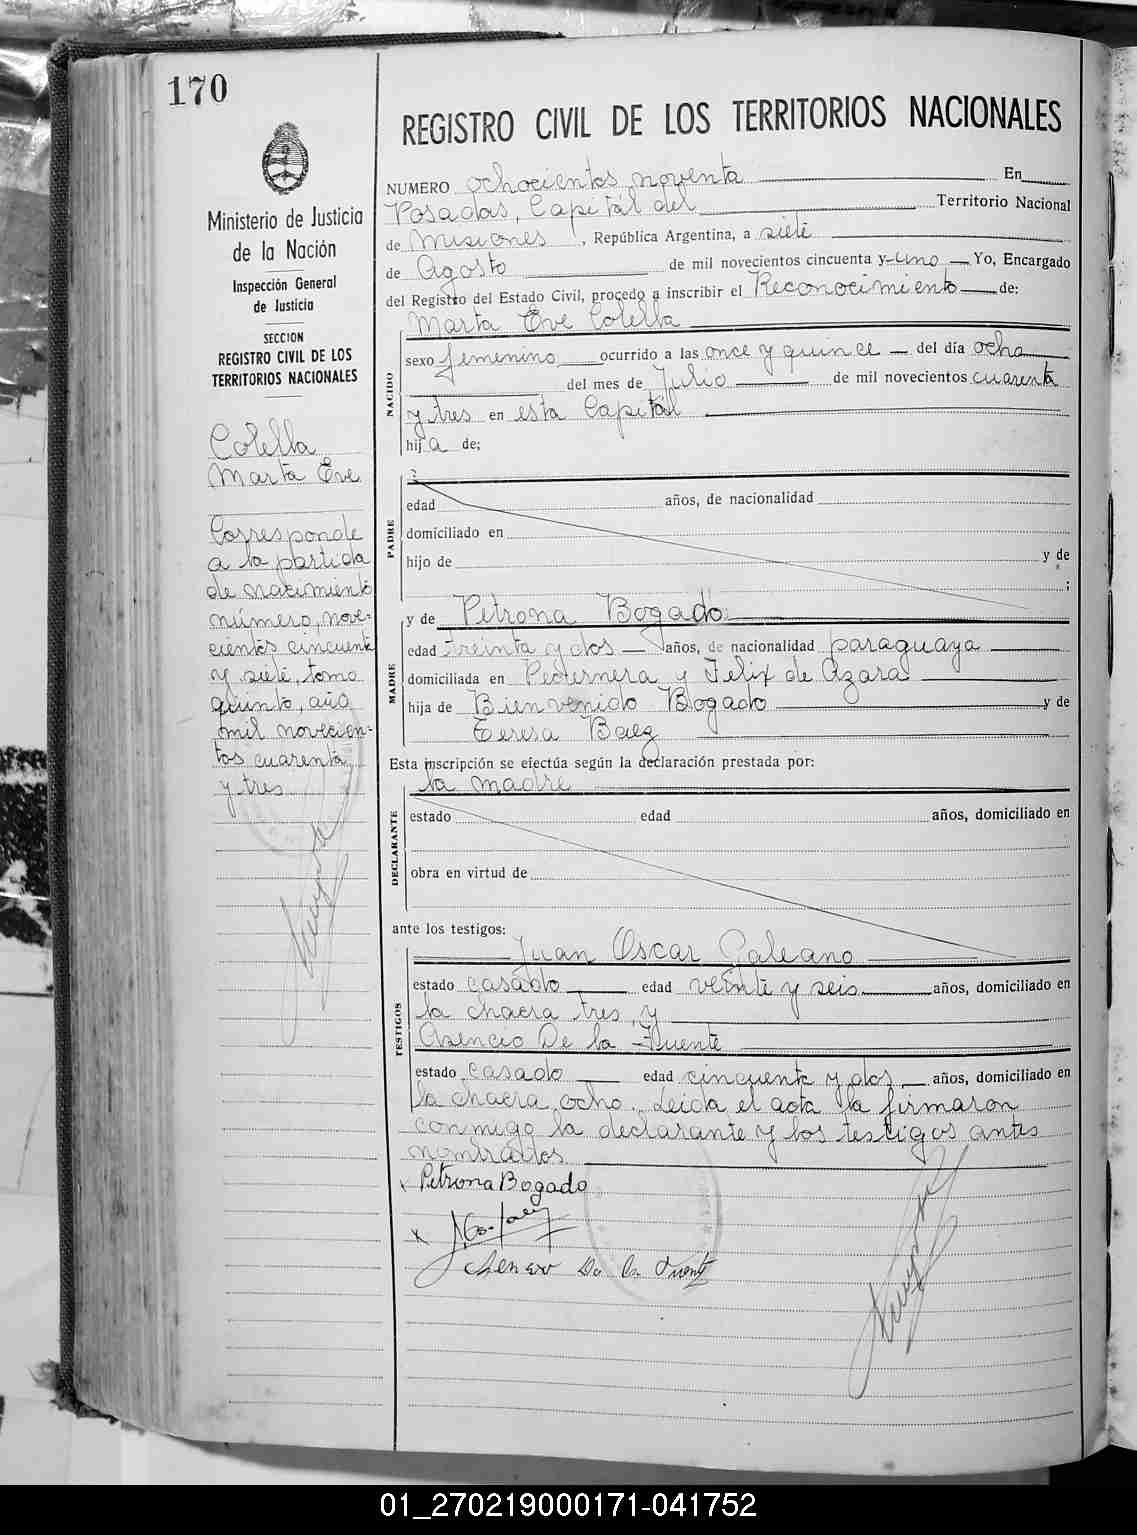 170
REGISTRO CIVIL DE LOS TERRITORIOS NACIONALES
Ministerio de Justicia
de la Nación
Inspección General
de Justicia
SECCION
REGISTRO CIVIL DE LOS
TERRITORIOS NACIONALES
Colella
Marta Eve
Corresponde
a la partida
de nacimiento
número, nove-
cientos cincuenta
y siete, tomo
quinto, año
mil novecien-
tos cuarenta
y tres
NUMERO ochocientos noventa En
Posadas, Capital del Territorio Nacional
de Misiones, República Argentina, a siete
de Agosto de mil novecientos cincuenta y uno Yo, Encargado
del Registro del Estado Civil, procedo a inscribir el Reconocimiento de:
Marta Eve Colella
NACIDO
sexo femenino ocurrido a las once y quince del día ocho
del mes de Julio de mil novecientos cuarenta
y tres en esta Capital
hija de;
PADRE
edad años, de nacionalidad
domiciliado en
hijo de y de
;
y de Petrona Bogado
MADRE
edad treinta y dos años, de nacionalidad paraguaya
domiciliada en Pedernera y Felix de Azara
hija de Bienvenido Bogado y de
Teresa Baez
Esta inscripción se efectúa según la declaración prestada por:
la madre
DECLARANTE
estado edad años, domiciliado en
obra en virtud de
ante los testigos:
Juan Oscar Galeano
TESTIGOS
estado casado edad veinte y seis años, domiciliado en
la chacra tres, y
Asencio De la Fuente
estado casado edad cincuenta y dos años, domiciliado en
la chacra ocho. Leida el acta la firmaron
conmigo la declarante y los testigos antes
nombrados
Petrona Bogado
De la Fuente
01_270219000171-041752